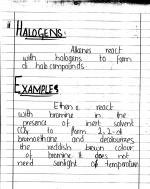 HALOGENS:
Alkenes react
with halogens to form
di halocompounds.
EXAMPLES
Ethene react
with bromine in the
presence of inert solvent
CCl4 to form 1,2-di
bromoethane and decolourizes
the reddish brown colour
of bromine. It does not
need sunlight or temperature